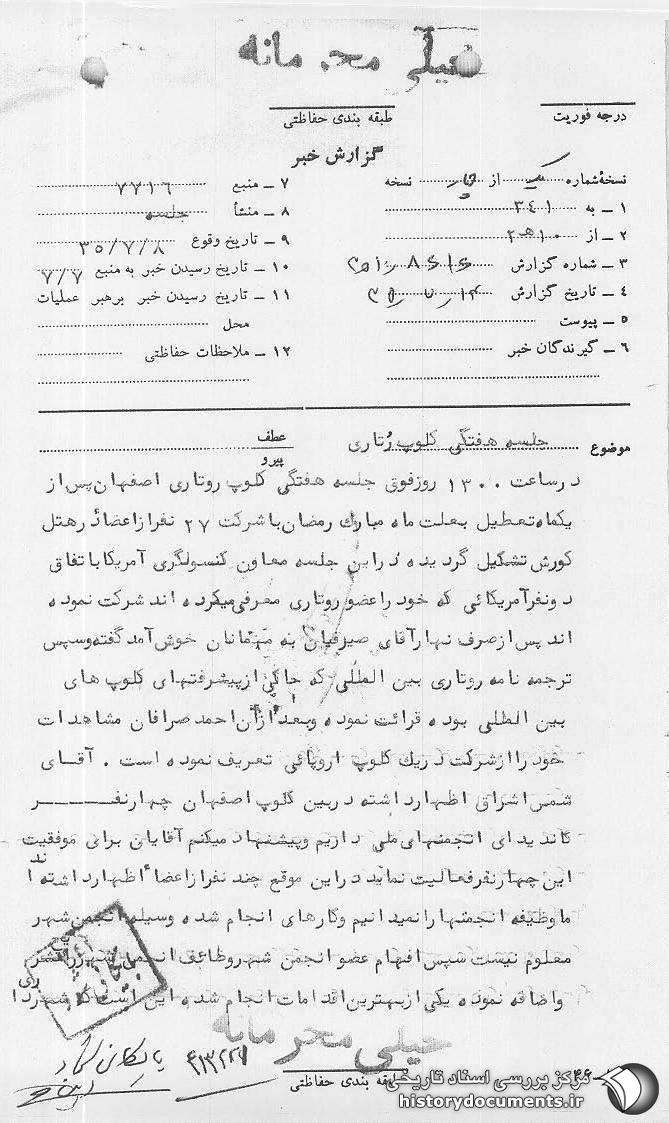 خیلی محرمانه
درجه فوریت
طبقه بندی حفاظتی
گزارش خبر
نسخهٔ شماره یک از چهار نسخه
۱ ـ به ۳٤۱
۲ ـ از ۱۰ هـ ۲
۳ ـ شماره گزارش
۴ ـ تاریخ گزارش
۵ ـ پیوست
۶ ـ گیرندگان خبر
۷ ـ منبع ۷۷۱۶
۸ ـ منشأ جلسه
۹ ـ تاریخ وقوع ۳۵/۷/۸
۱۰ ـ تاریخ رسیدن خبر به منبع ۷/۷
۱۱ ـ تاریخ رسیدن خبر برهبر عملیات
محل
۱۲ ـ ملاحظات حفاظتی
موضوع جلسه هفتگی کلوپ رتاری
عطف
پیرو
درساعت ۱۳۰۰ روزفوق جلسه هفتگی کلوپ روتاری اصفهان پس از
یکماه تعطیل بعلت ماه مبارک رمضان با شرکت ۲۷ نفرازاعضاء درهتل
کورش تشکیل گردیده دراین جلسه معاون کنسولگری آمریکا باتفاق
دونفرآمریکائی که خود راعضو روتاری معرفی میکرده اند شرکت نموده
اند پس ازصرف نهارآقای صیرفیان به مهمانان خوش آمد گفته وسپس
ترجمه نامه روتاری بین المللی که حاکی ازپیشرفتهای کلوپ های
بین المللی بوده قرائت نموده وبعد ازآن احمد صرافان مشاهدات
خود راازشرکت دریک کلوپ اروپائی تعریف نموده است . آقـای
شمس اشراق اظهارداشته دربین کلوپ اصفهان چهارنفـــر
کاندیدای انجمنهای ملی داریم وپیشنهاد میکنم آقایان برای موفقیت
این چهارنفرفعالیت نمایند دراین موقع چند نفرازاعضاء اظهارداشته اند
ماوظیفه انجمنها رانمیدانیم وکارهای انجام شده وسیله انجمن شهر
معلوم نیست سپس افهام عضو انجمن شهروظائف انجمن شهررا
واضافه نموده یکی ازبهترین اقدامات انجام شده این است که شهردا
ری
خیلی محرمانه
طبقه بندی حفاظتی
۴۱۳۲۲۷
۴۶
مرکز بررسی اسناد تاریخی
historydocuments.ir